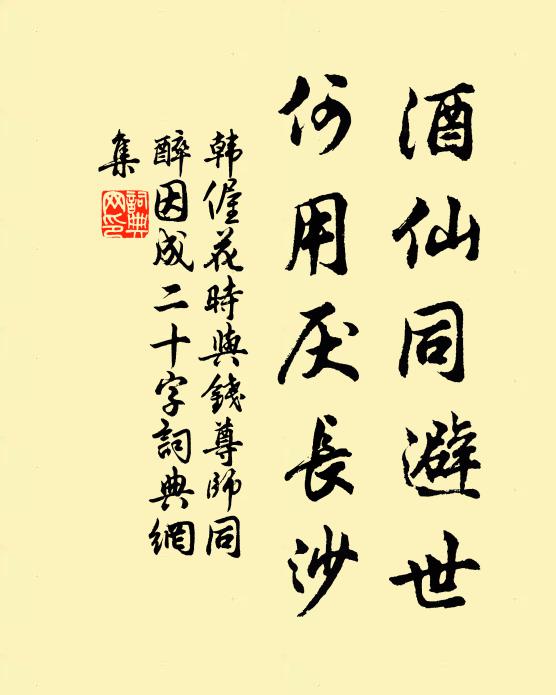 酒仙同避世
何用厌长沙
韩偓花時與錢尊師同
醉因成二十字詞典網
集
詞典网印